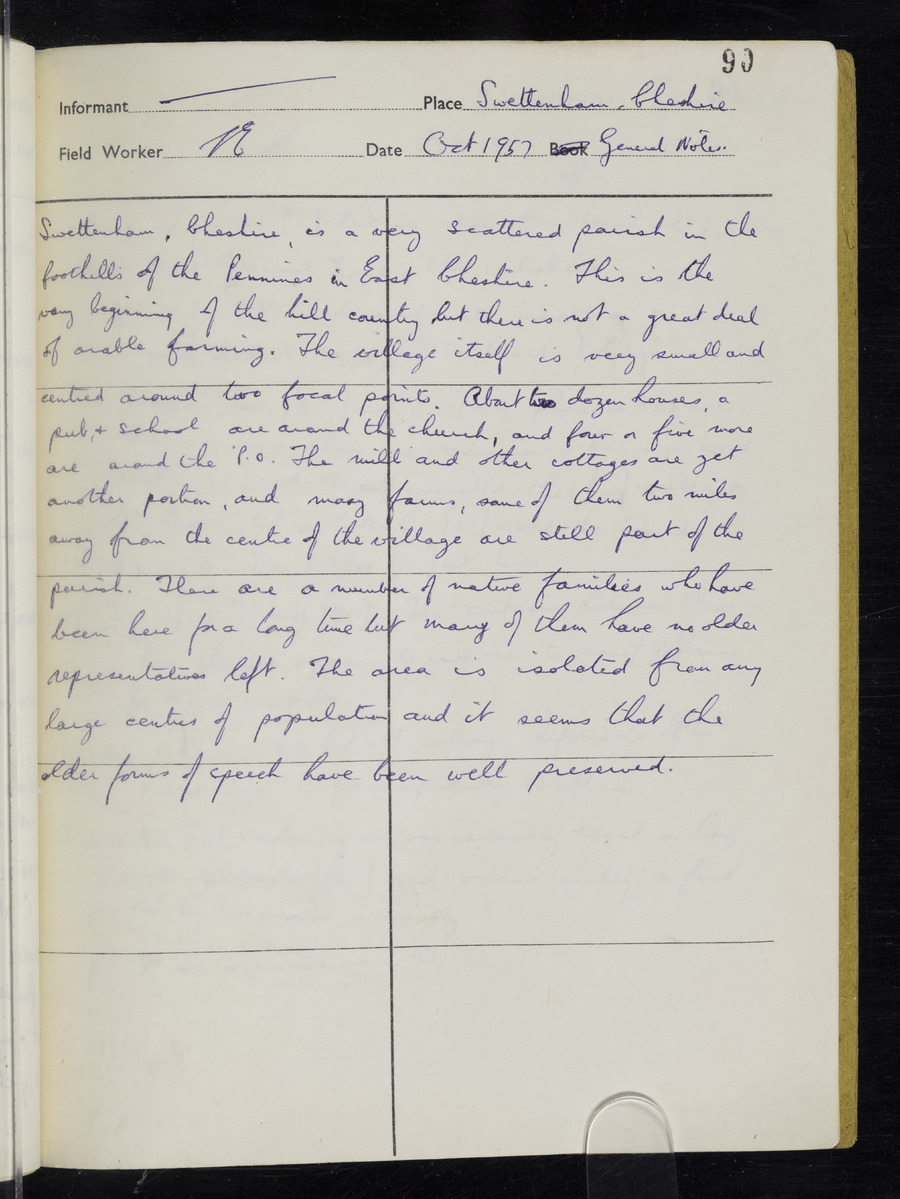 90
Informant Place Swettenham, Cheshire
Field Worker Date Oct 1957 Book General Notes.
Swettenham, Cheshire, is a very scattered parish in the
foothills of the Pennines in East Cheshire. This is the
very beginning of the hill country but there is not a great deal
of arable farming. The village itself is very small and
centred around two focal points. About two dozen houses, a
pub, + school are around the church, and four or five more
are around the P.O. The mill and other cottages are yet
another portion, and many farms, some of them two miles
away from the centre of the village are still part of the
parish. There are a number of native families who have
been here for a long time but many of them have no older
representatives left. The area is isolated from any
large centres of population and it seems that the
older forms of speech have been well preserved.